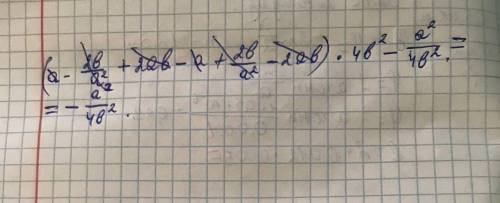 (a - 2b/a² + 2ab - a + 2b/a² - 2ab) · 4b² - a²/4b² =
= - a²/4b².